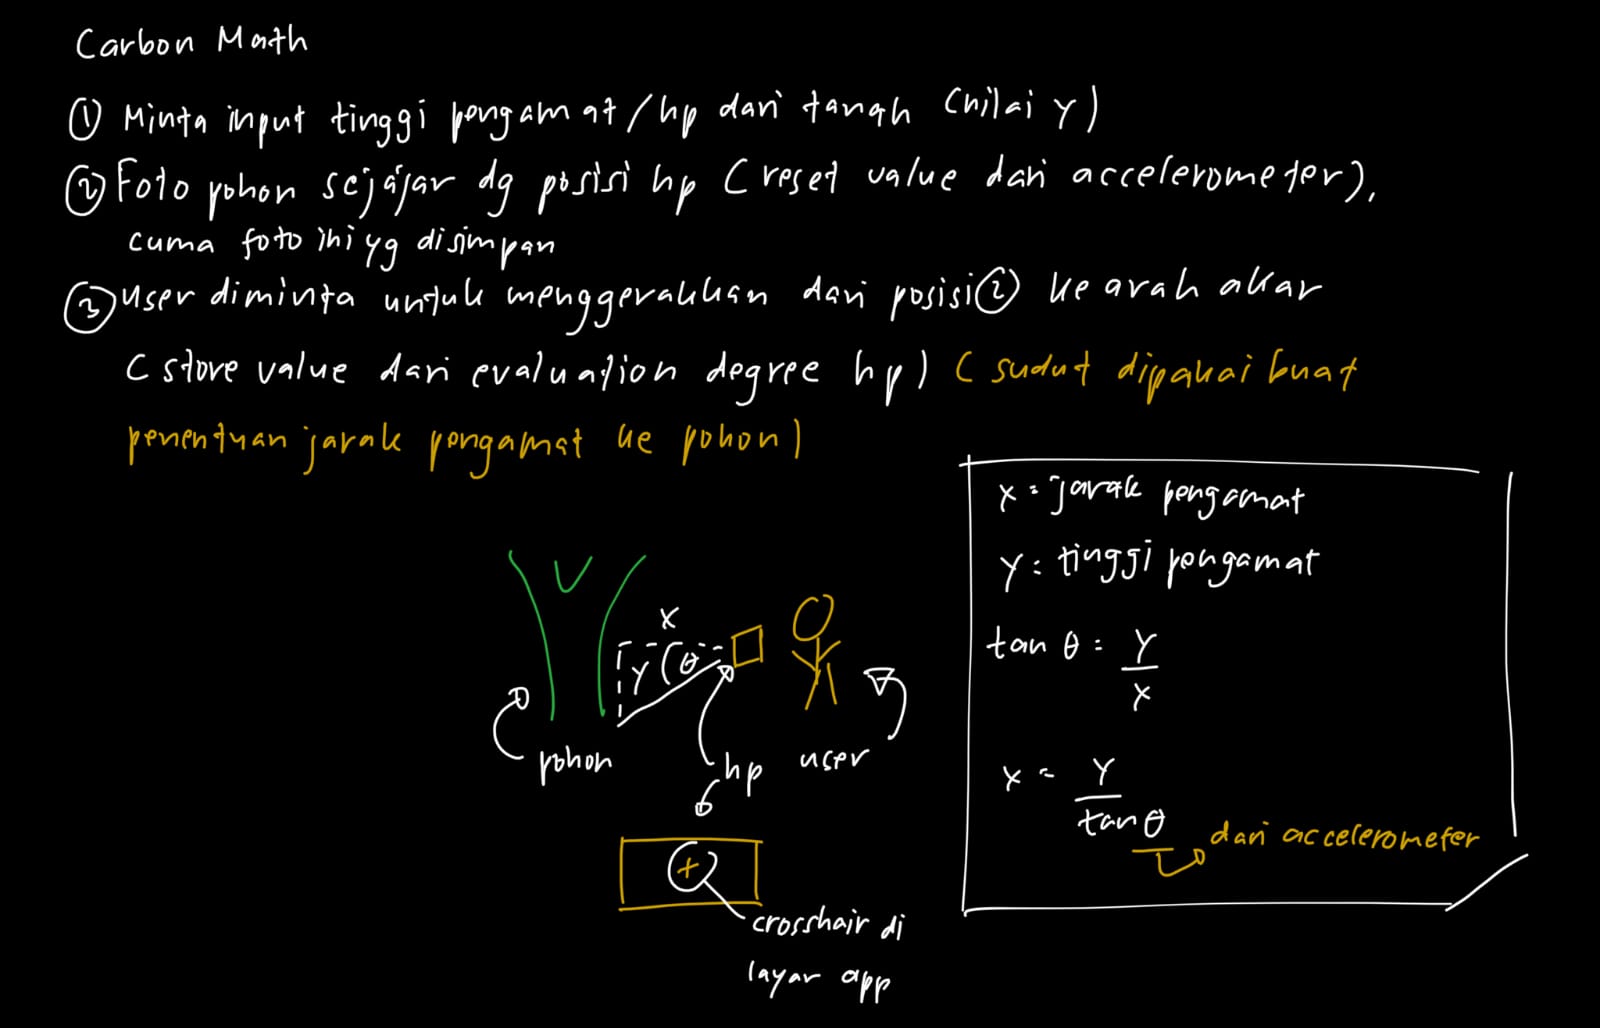 Carbon Math
① Minta input tinggi pengamat/hp dari tanah (nilai y)
② Foto pohon sejajar dg posisi hp (reset value dari accelerometer),
cuma foto ini yg disimpan
③ User diminta untuk menggerakkan dari posisi ② ke arah akar
(store value dari evaluation degree hp) (sudut dipakai buat
penentuan jarak pengamat ke pohon)
x = jarak pengamat
y = tinggi pengamat
tan θ = y
x
x = y
tan θ
dari accelerometer
x
y
θ
pohon
hp
user
+
crosshair di
layar app